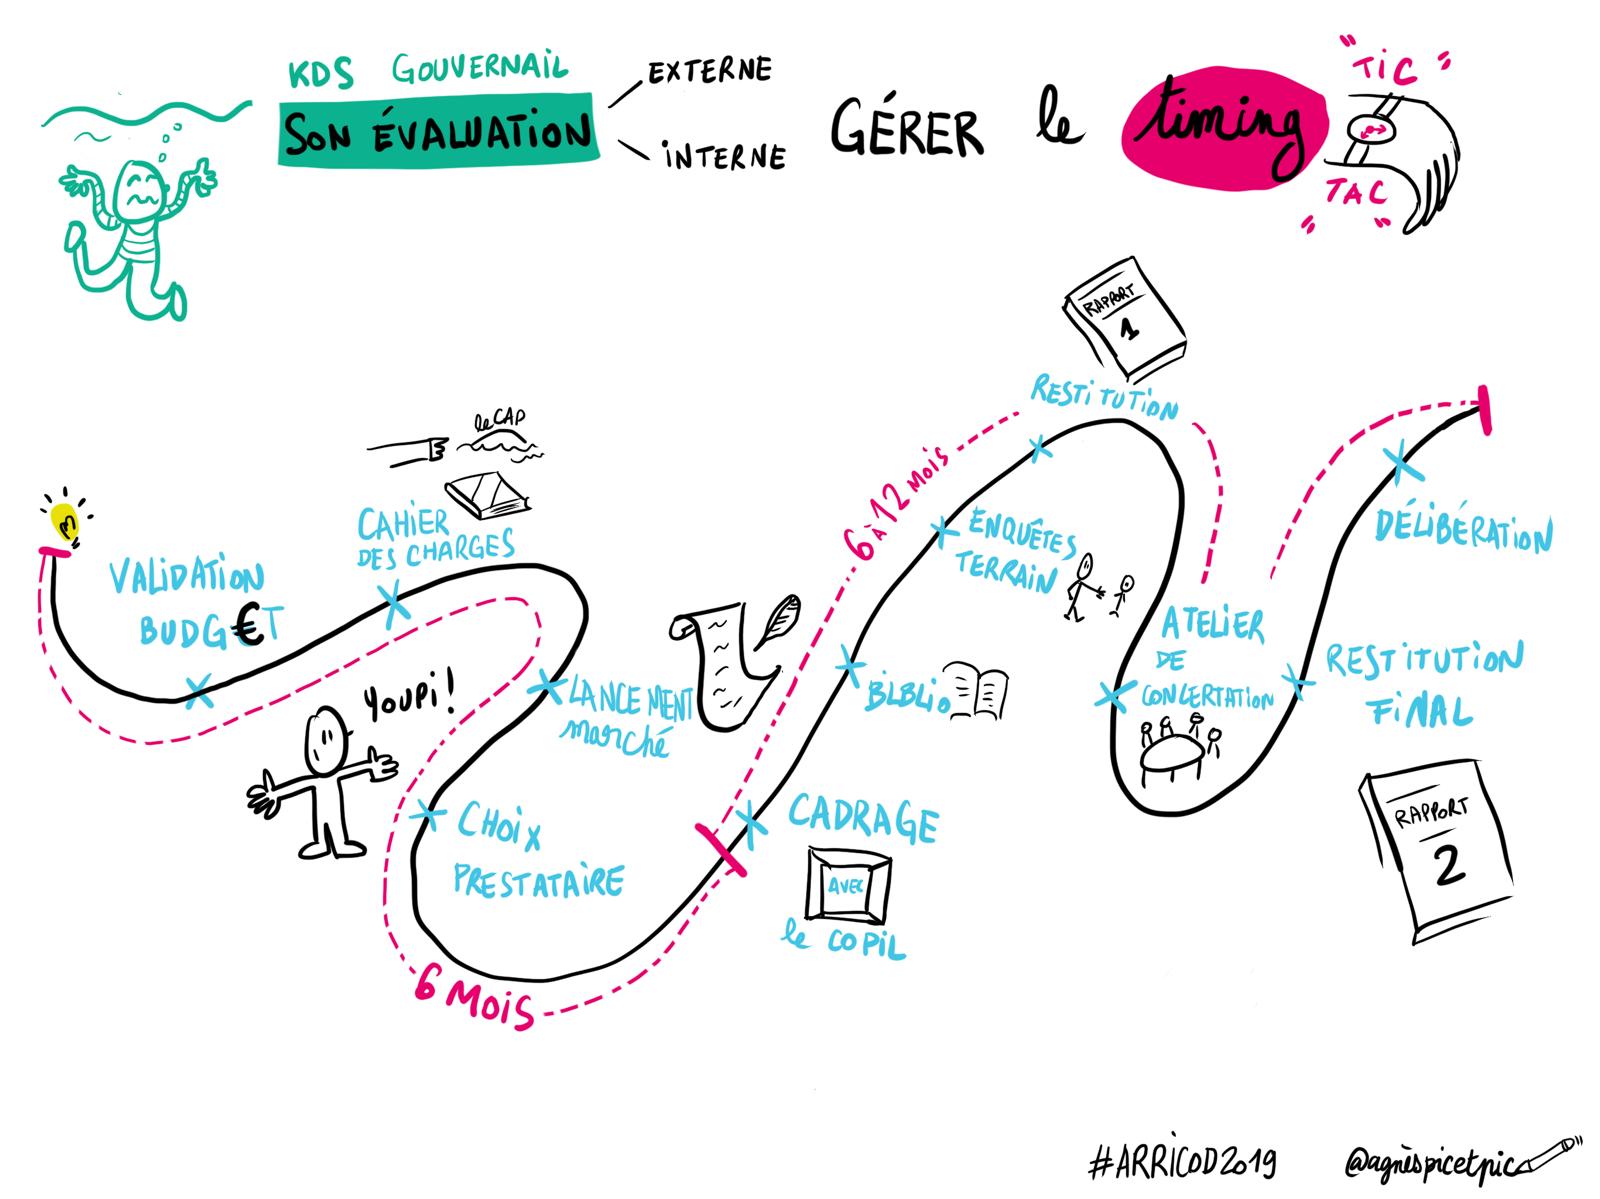 KDS GOUVERNAIL
SON ÉVALUATION
EXTERNE
INTERNE
GÉRER le timing
"TIC"
TAC
" "
RAPPORT
1
RESTITUTION
le CAP
CAHIER
DES CHARGES
VALIDATION
BUDG€T
6 à 12 MOIS
ENQUÊTES
TERRAIN
DÉLIBÉRATION
ATELIER
DE
CONCERTATION
RESTITUTION
FINAL
BIBLIO
YOUPI!
LANCEMENT
marché
CHOIX
PRESTATAIRE
CADRAGE
AVEC
le COPIL
RAPPORT
2
6 MOIS
#ARRICOD2019
@agnèspicetpic